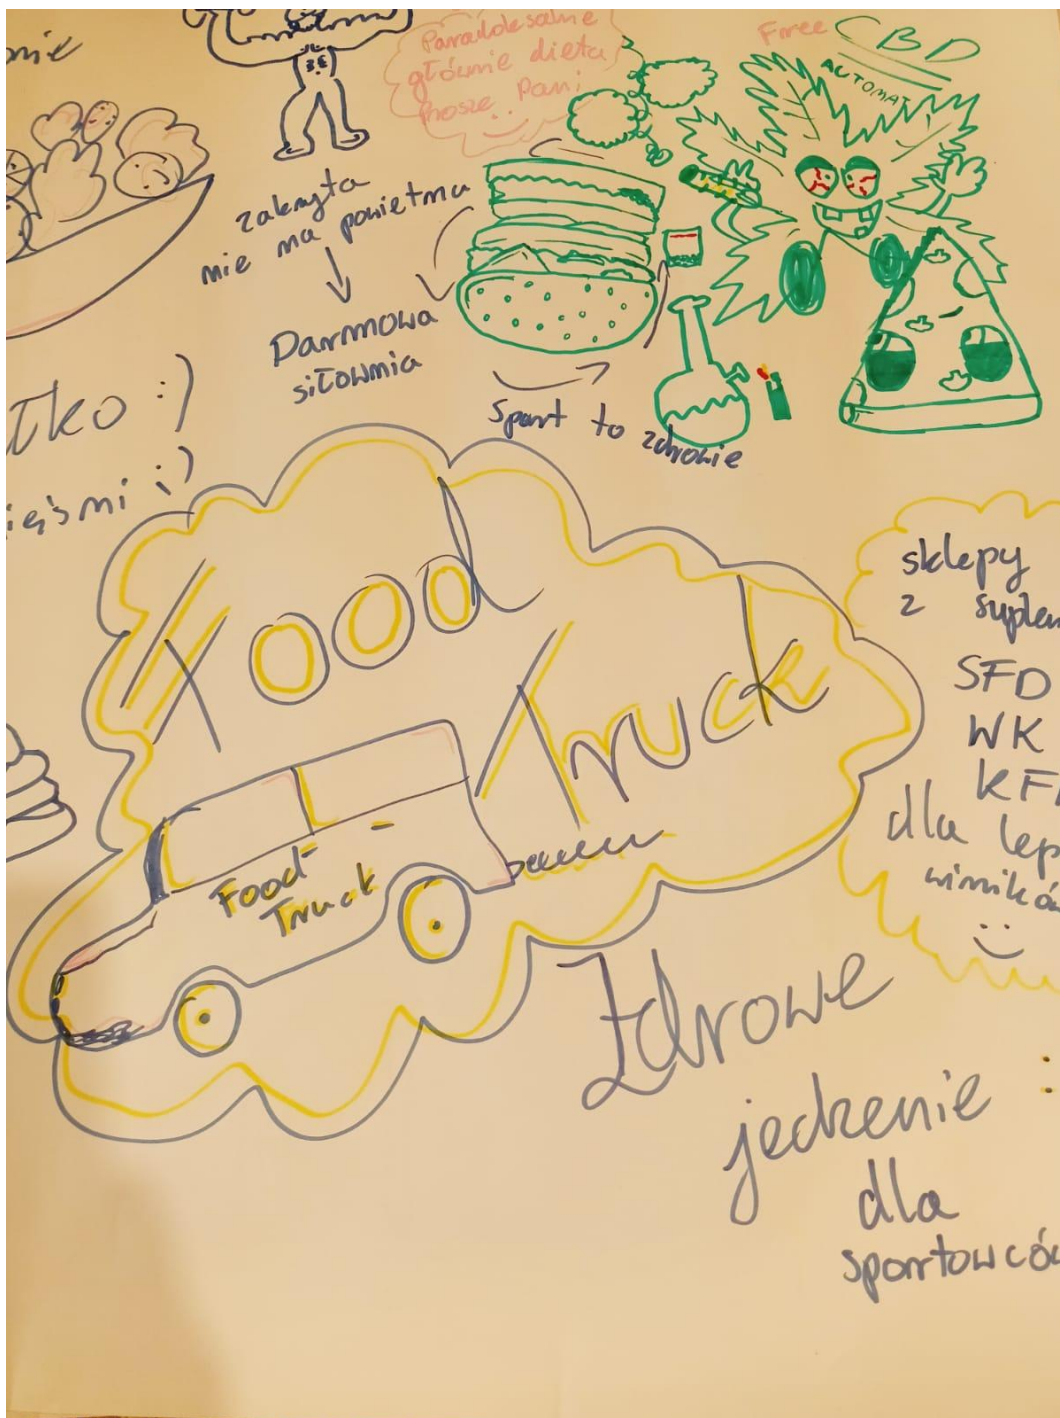 nie
Paradoksalnie
głównie dieta
Proszę Pani
Free CBD
AUTOMAT
zakryta
nie na powietrzu
Darmowa
siłownia
Sport to zdrowie
tko :)
ięśmi ;)
Food
Truck
Food
Truck
sklepy
z suplem
SFD
WK
KF
dla lep
wyników
Zdrowe
jedzenie
dla
sportowców